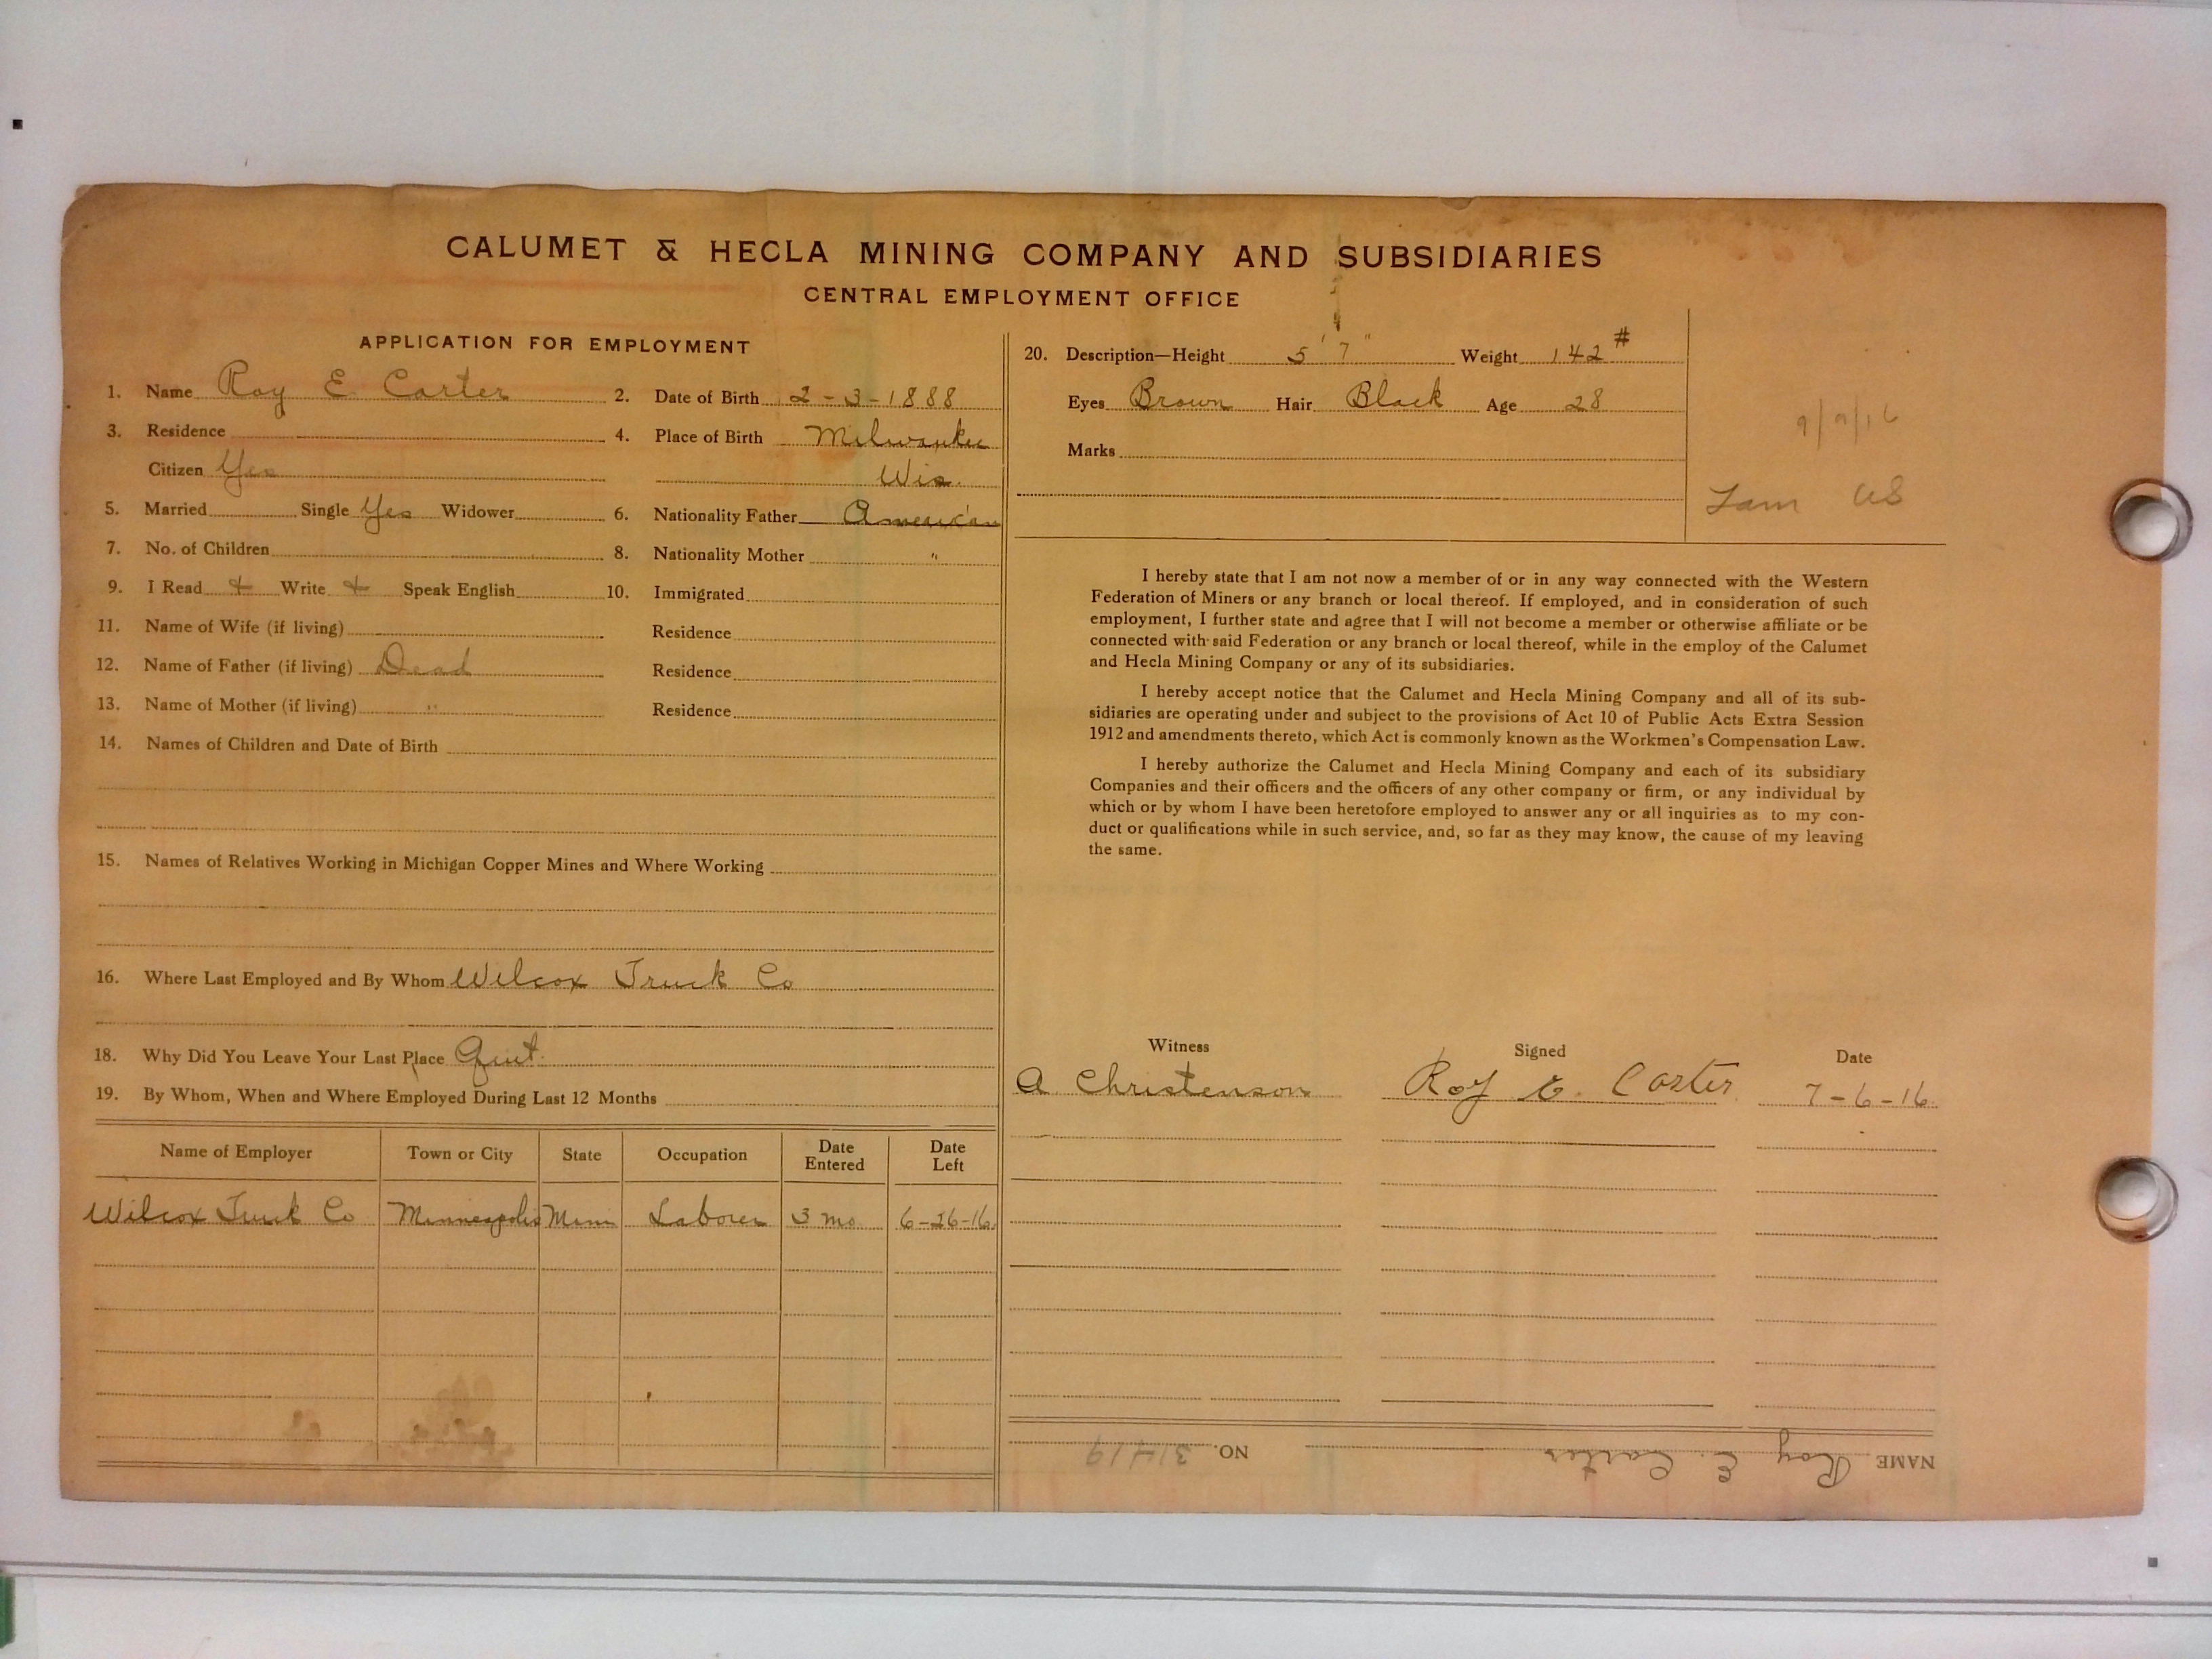 CALUMET & HECLA MINING COMPANY AND SUBSIDIARIES
CENTRAL EMPLOYMENT OFFICE
APPLICATION FOR EMPLOYMENT
1. Name Roy E Carter 2. Date of Birth 2-3-1888
3. Residence 4. Place of Birth Milwaukee
Citizen Yes Wis.
5. Married Single Yes Widower 6. Nationality Father American
7. No. of Children 8. Nationality Mother "
9. I Read + Write + Speak English 10. Immigrated
11. Name of Wife (if living) Residence
12. Name of Father (if living) Dead Residence
13. Name of Mother (if living) " Residence
14. Names of Children and Date of Birth
15. Names of Relatives Working in Michigan Copper Mines and Where Working
16. Where Last Employed and By Whom Wilcox Truck Co
18. Why Did You Leave Your Last Place Quit.
19. By Whom, When and Where Employed During Last 12 Months
Name of Employer Town or City State Occupation Date Entered Date Left
Wilcox Truck Co Minneapolis Minn Laborer 3 mo. 6-26-16.
20. Description—Height 5' 7" Weight 142#
Eyes Brown Hair Black Age 28
Marks
9/9/16
I hereby state that I am not now a member of or in any way connected with the Western
Federation of Miners or any branch or local thereof. If employed, and in consideration of such
employment, I further state and agree that I will not become a member or otherwise affiliate or be
connected with said Federation or any branch or local thereof, while in the employ of the Calumet
and Hecla Mining Company or any of its subsidiaries.
I hereby accept notice that the Calumet and Hecla Mining Company and all of its sub-
sidiaries are operating under and subject to the provisions of Act 10 of Public Acts Extra Session
1912 and amendments thereto, which Act is commonly known as the Workmen's Compensation Law.
I hereby authorize the Calumet and Hecla Mining Company and each of its subsidiary
Companies and their officers and the officers of any other company or firm, or any individual by
which or by whom I have been heretofore employed to answer any or all inquiries as to my con-
duct or qualifications while in such service, and, so far as they may know, the cause of my leaving
the same.
Witness Signed Date
A Christenson Roy E. Carter 7-6-16.
NAME Roy E. Carter NO. 31419